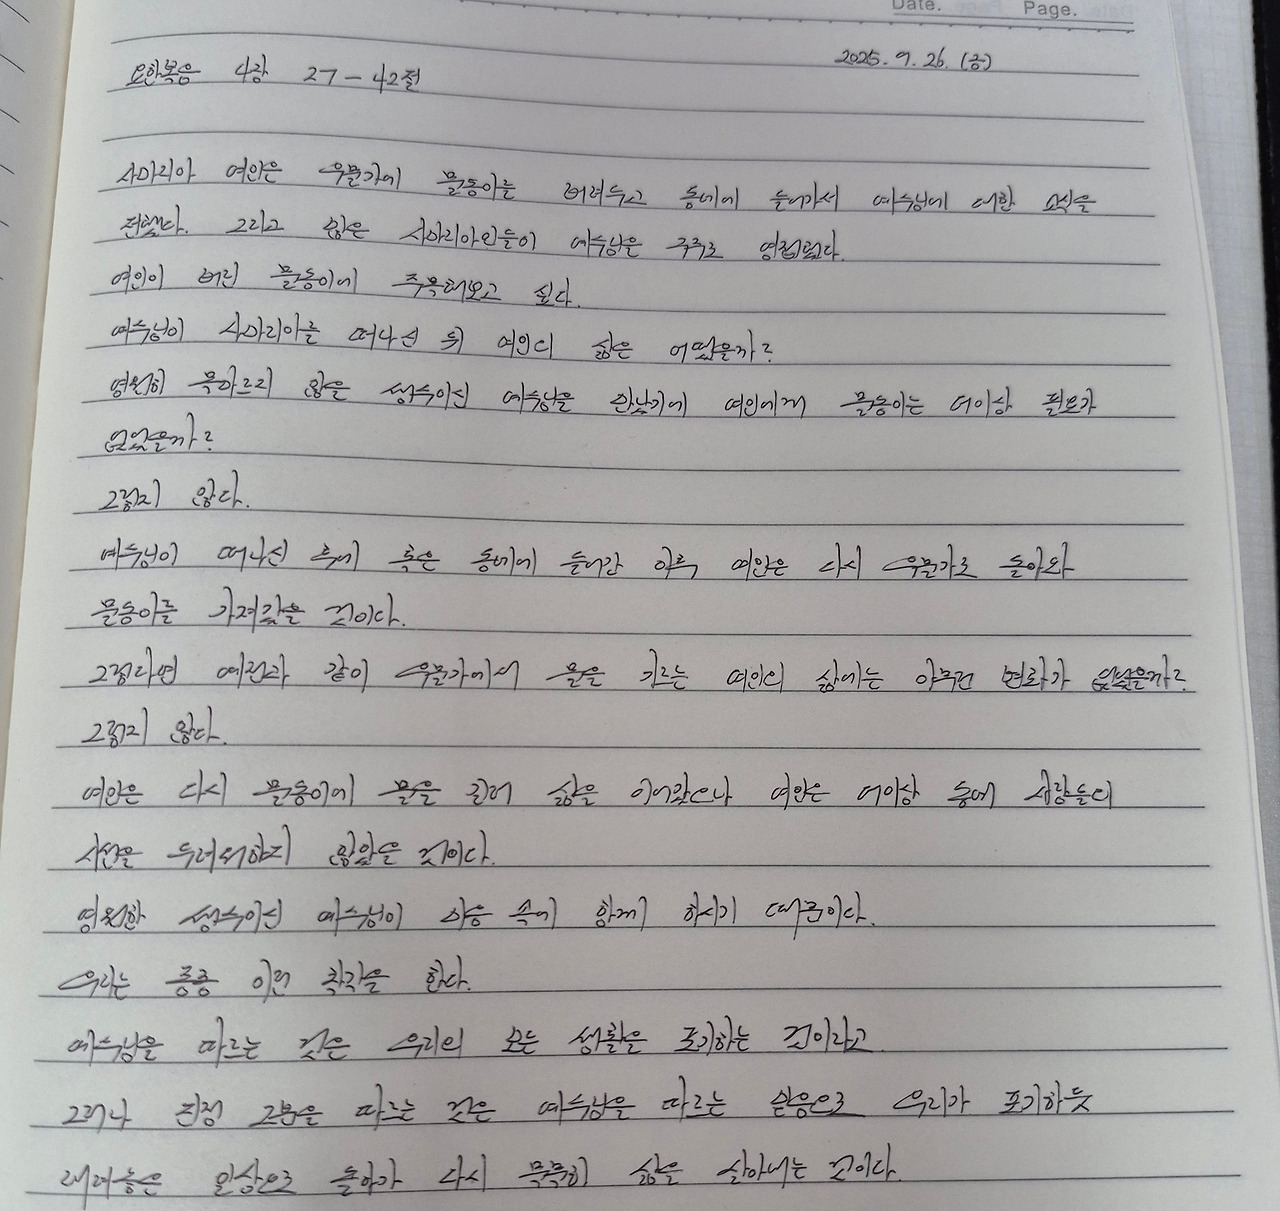 Date. Page.
2025. 9. 26. (금)
요한복음 4장 27-42절
사마리아 여인은 우물가에 물동이를 버려두고 동네에 들어가서 예수님에 대한 소식을
전했다. 그리고 많은 사마리아인들이 예수님을 구주로 영접했다.
여인이 버린 물동이에 주목해보고 싶다.
예수님이 사마리아를 떠나신 뒤 여인의 삶은 어땠을까?
영원히 목마르지 않을 생수이신 예수님을 만났기에 여인에게 물동이는 더이상 필요가
없었을까?
그렇지 않다.
예수님이 떠나신 후에 혹은 동네에 들어간 이후 여인은 다시 우물가로 돌아와
물동이를 가져갔을 것이다.
그렇다면 여전과 같이 우물가에서 물을 기르는 여인의 삶에는 아무런 변화가 없었을까?
그렇지 않다.
여인은 다시 물동이에 물을 길러 삶을 이어갔으나 여인은 더이상 동네 사람들의
시선을 두려워하지 않았을 것이다.
영원한 생수이신 예수님이 마음 속에 함께 하시기 때문이다.
우리는 종종 이런 착각을 한다.
예수님을 따르는 것은 우리의 모든 생활을 포기하는 것이라고
그러나 진정 그분을 따르는 것은 예수님을 따르는 믿음으로 우리가 포기하듯
내려놓은 일상으로 돌아가 다시 묵묵히 삶을 살아내는 것이다.